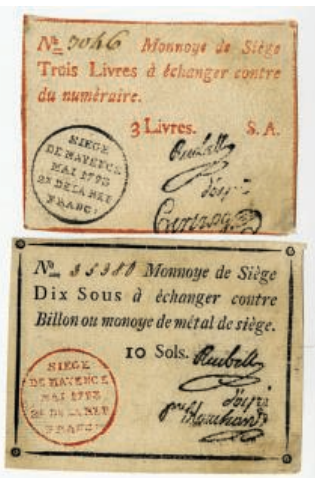 No. 3046 Monnoye de Siège
Trois Livres à échanger contre
du numéraire.
3 Livres. S. A.
SIEGE
DE MAYENCE
MAI 1793
2E DE LA REP
FRANC:
Reubell
d'oyré
No. 35380 Monnoye de Siège
Dix Sous à échanger contre
Billon ou monoye de métal de siège.
10 Sols. Reubell
SIEGE
DE MAYENCE
MAI 1793
2E DE LA REP
FRANC:
d'oyré